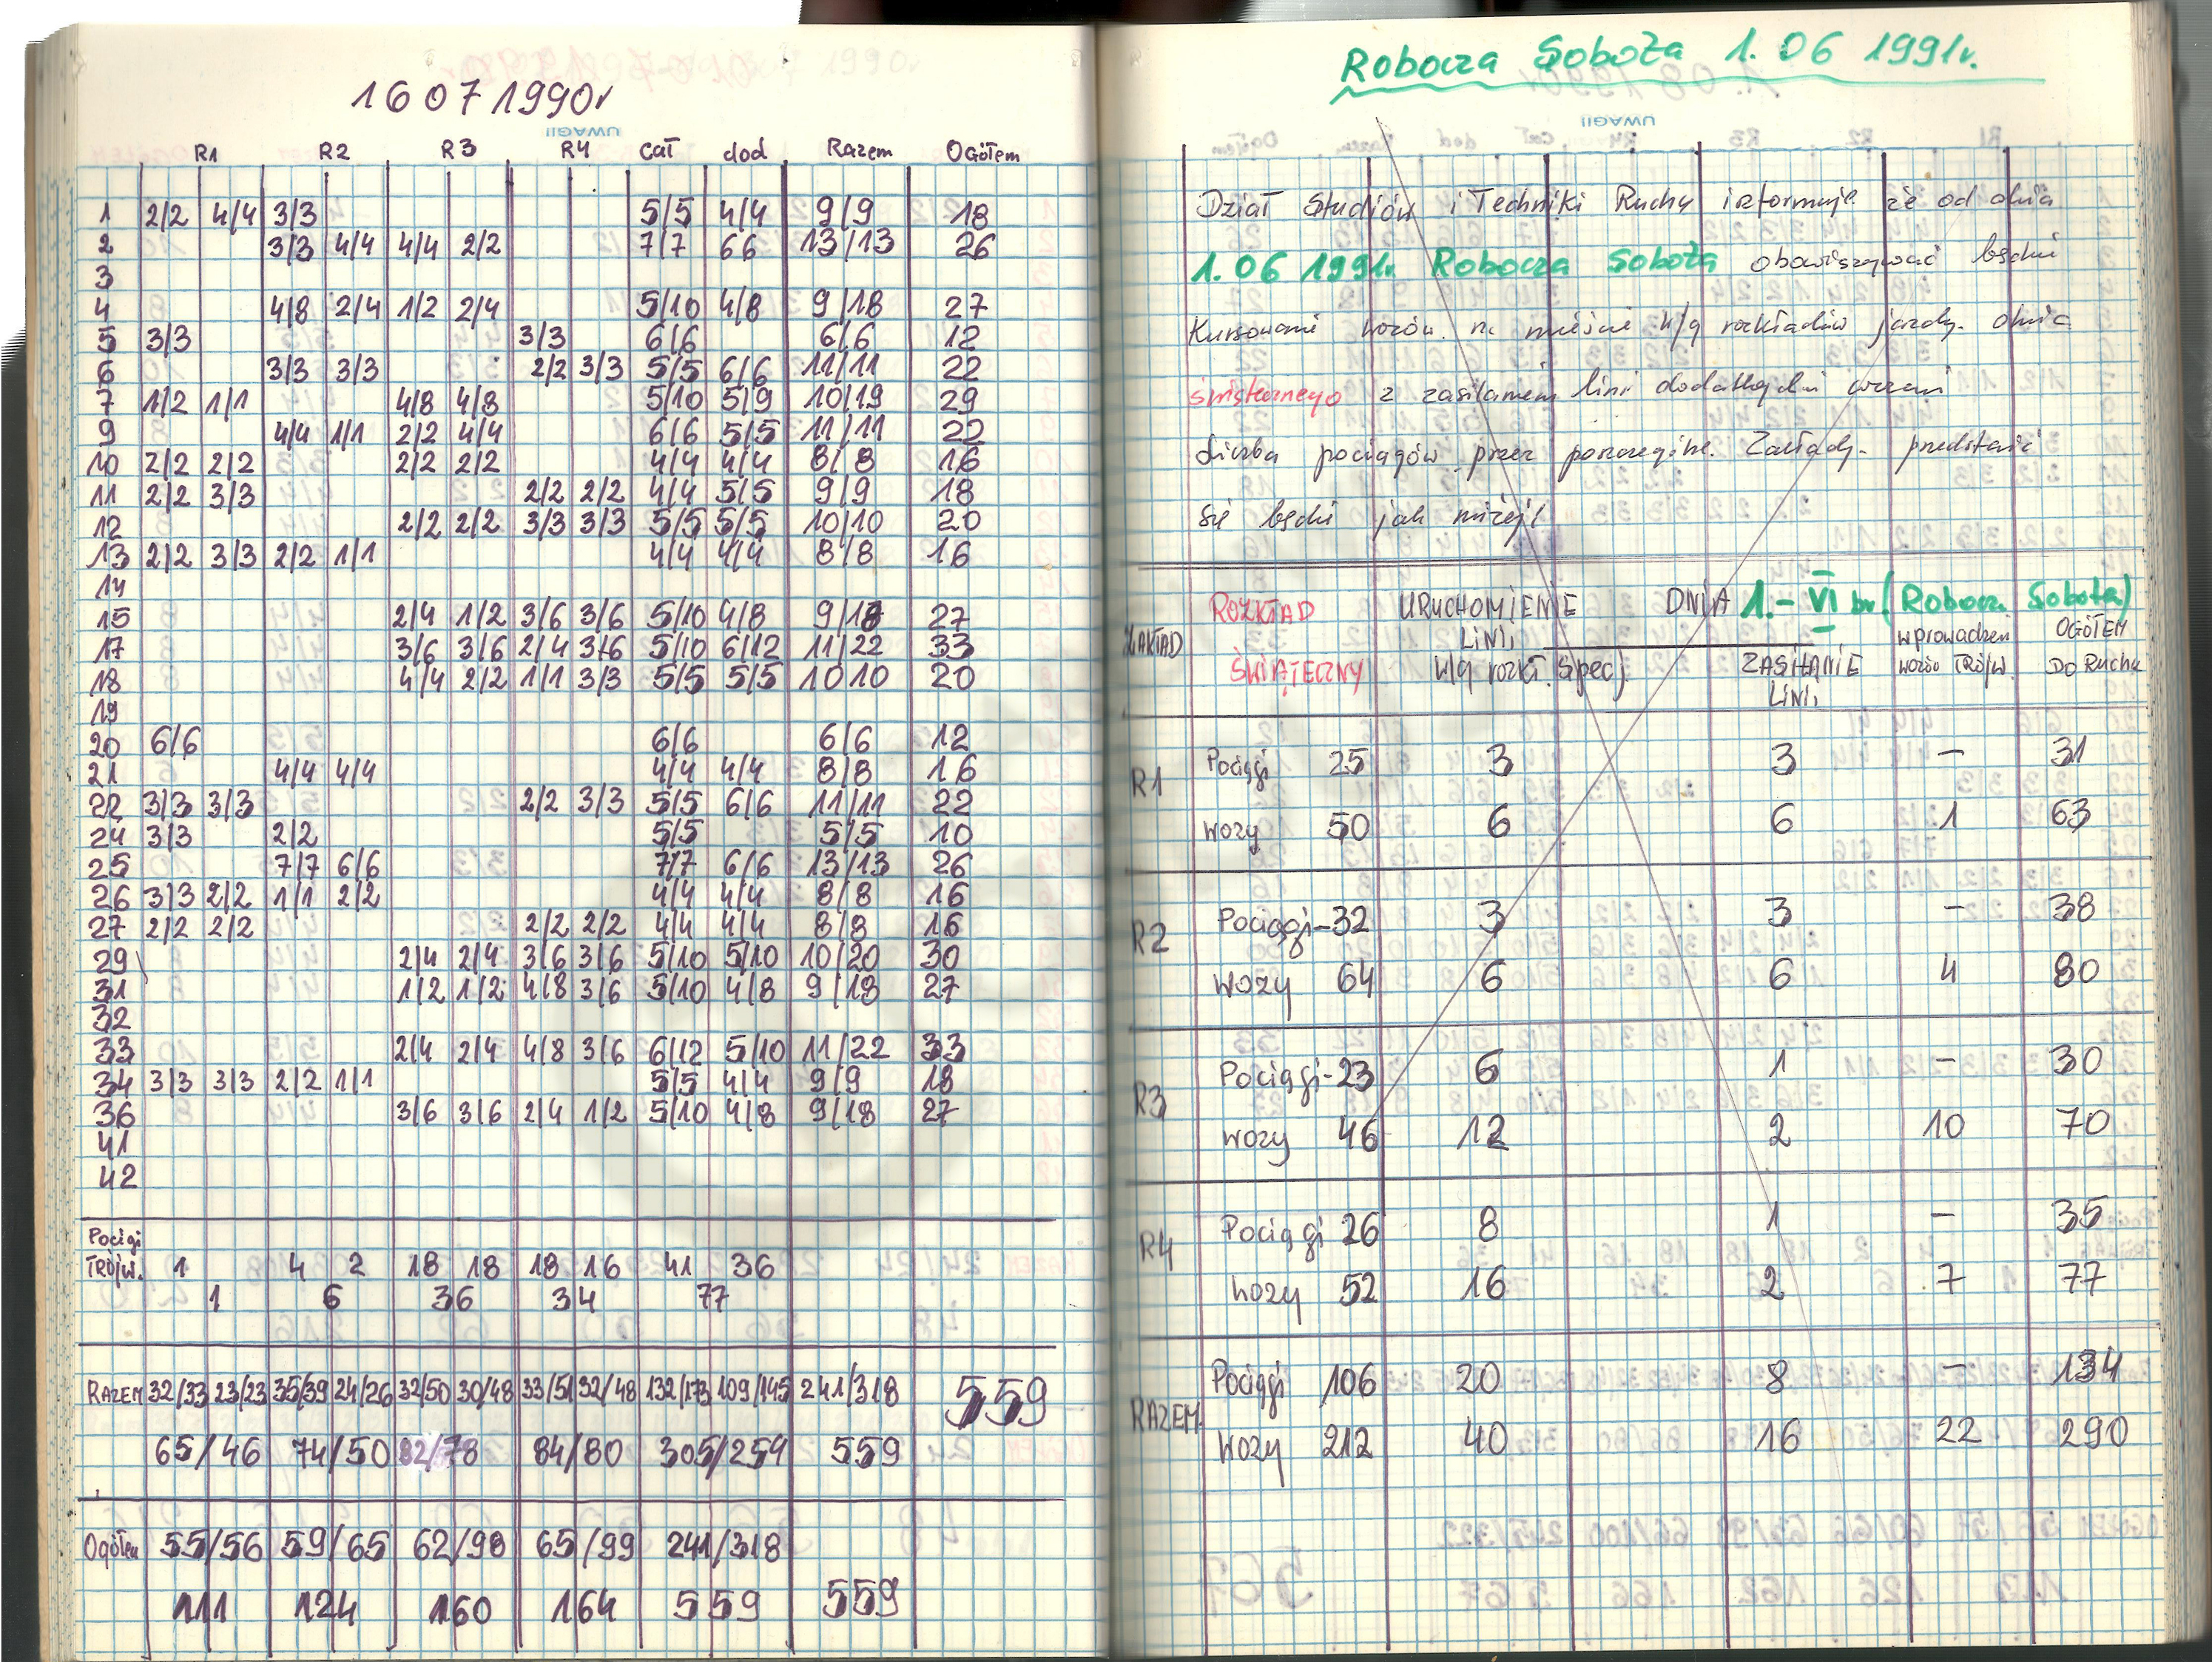 16 07 1990r
UWAGI
R1 R2 R3 R4 cał dod Razem Ogółem
1 2/2 4/4 3/3 5/5 4/4 9/9 18
2 3/3 4/4 4/4 2/2 7/7 66 13/13 26
3
4 4/8 2/4 1/2 2/4 5/10 4/8 9/18 27
5 3/3 3/3 6/6 6/6 12
6 3/3 3/3 2/2 3/3 5/5 6/6 11/11 22
7 1/2 1/1 4/8 4/8 5/10 5/9 10/19 29
9 4/4 1/1 2/2 4/4 6/6 5/5 11/11 22
10 2/2 2/2 2/2 2/2 4/4 4/4 8/8 16
11 2/2 3/3 2/2 2/2 4/4 5/5 9/9 18
12 2/2 2/2 3/3 3/3 5/5 5/5 10/10 20
13 2/2 3/3 2/2 1/1 4/4 4/4 8/8 16
14
15 2/4 1/2 3/6 3/6 5/10 4/8 9/18 27
17 3/6 3/6 2/4 3/6 5/10 6/12 11/22 33
18 4/4 2/2 1/1 3/3 5/5 5/5 10 10 20
19
20 6/6 6/6 6/6 12
21 4/4 4/4 4/4 4/4 8/8 16
22 3/3 3/3 2/2 3/3 5/5 6/6 11/11 22
24 3/3 2/2 5/5 5/5 10
25 7/7 6/6 7/7 6/6 13/13 26
26 3/3 2/2 1/1 2/2 4/4 4/4 8/8 16
27 2/2 2/2 2/2 2/2 4/4 4/4 8/8 16
29 2/4 2/4 3/6 3/6 5/10 5/10 10/20 30
31 1/2 1/2 4/8 3/6 5/10 4/8 9/18 27
32
33 2/4 2/4 4/8 3/6 6/12 5/10 11/22 33
34 3/3 3/3 2/2 1/1 5/5 4/4 9/9 18
36 3/6 3/6 2/4 1/2 5/10 4/8 9/18 27
41
42
Pociągi
Trójw. 1 4 2 18 18 18 16 41 36
1 6 36 34 77
RAZEM 32/33 23/23 35/39 24/26 32/50 30/48 33/51 32/48 132/173 109/145 241/318 559
65/46 74/50 82/78 84/80 305/254 559
Ogółem 55/56 59/65 62/98 65/99 241/318
111 124 160 164 559 559
Robocza Sobota 1. 06 1991r.
UWAGI
Dział Studiów i Techniki Ruchu informuje że od dnia
1. 06 1991r. Robocza Sobota obowiązywać będzie
Kursowanie wozów na mieście w/g rozkładów jazdy dnia
świątecznego z zasilaniem linii dodatkowymi wozami
Liczba pociągów przez poszczególne Zakłady przedstawiać
się będzie jak niżej
ZAKŁAD ROZKŁAD URUCHOMIENIE DNIA 1.- VI br. (Robocz. Sobota)
LINII wprowadzen OGÓŁEM
ŚWIĄTECZNY w/g rozkł. spec). ZASILANIE wozów TRÓJW. Do Ruchu
LINII
R1 Pociągi 25 3 3 – 31
wozy 50 6 6 1 63
R2 Pociągi-32 3 3 – 38
Wozy 64 6 6 4 80
R3 Pociągi-23 6 1 – 30
wozy 46 12 2 10 70
R4 Pociągi 26 8 1 – 35
wozy 52 16 2 7 77
RAZEM Pociągi 106 20 8 – 134
Wozy 212 40 16 22 290